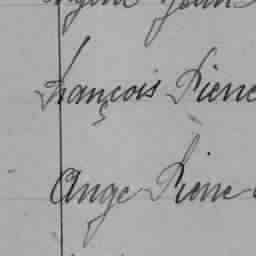 François Pierre
Ange Pierre